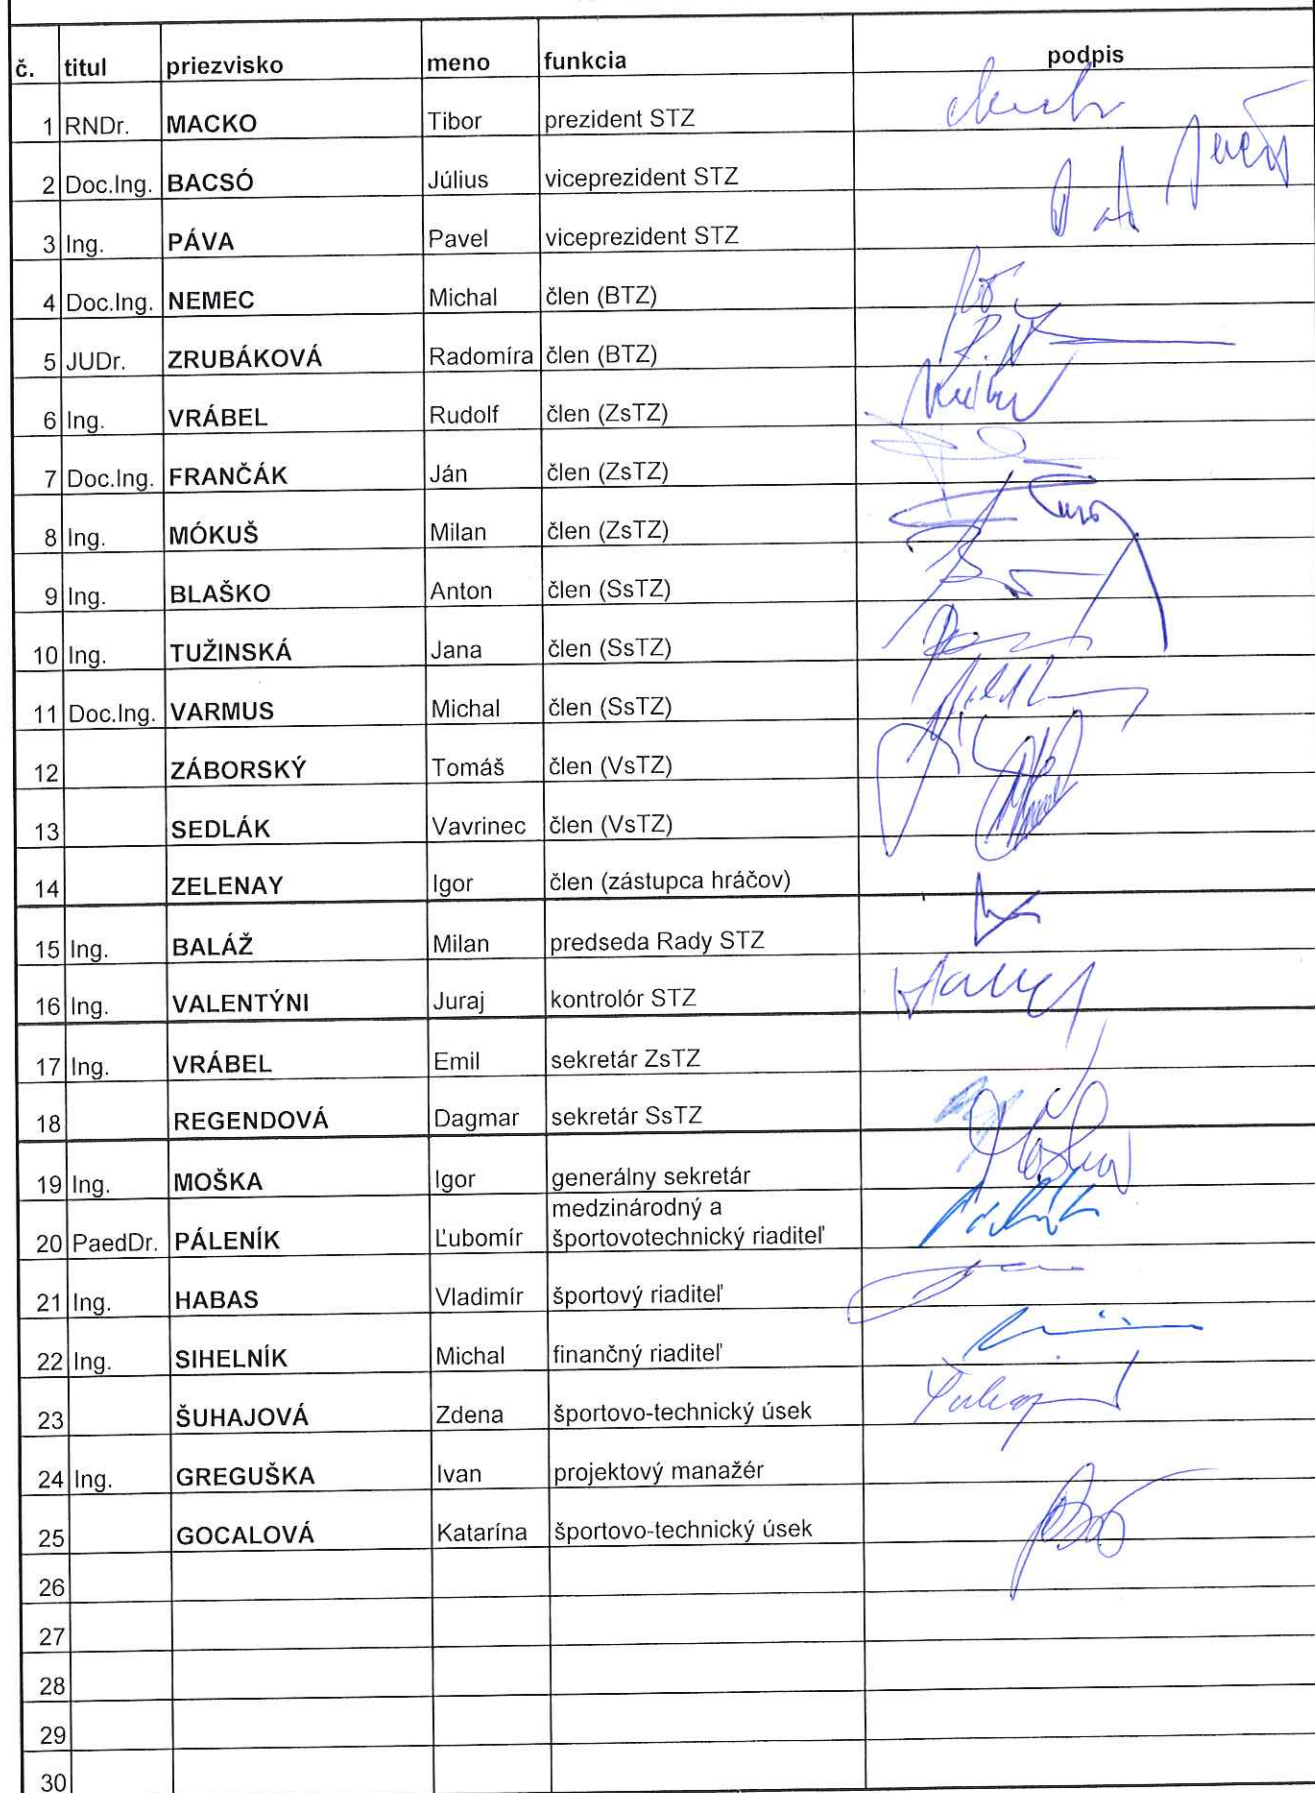 č. titul priezvisko meno funkcia podpis
1 RNDr. MACKO Tibor prezident STZ
2 Doc.Ing. BACSÓ Július viceprezident STZ
3 Ing. PÁVA Pavel viceprezident STZ
4 Doc.Ing. NEMEC Michal člen (BTZ)
5 JUDr. ZRUBÁKOVÁ Radomíra člen (BTZ)
6 Ing. VRÁBEL Rudolf člen (ZsTZ)
7 Doc.Ing. FRANČÁK Ján člen (ZsTZ)
8 Ing. MÓKUŠ Milan člen (ZsTZ)
9 Ing. BLAŠKO Anton člen (SsTZ)
10 Ing. TUŽINSKÁ Jana člen (SsTZ)
11 Doc.Ing. VARMUS Michal člen (SsTZ)
12 ZÁBORSKÝ Tomáš člen (VsTZ)
13 SEDLÁK Vavrinec člen (VsTZ)
14 ZELENAY Igor člen (zástupca hráčov)
15 Ing. BALÁŽ Milan predseda Rady STZ
16 Ing. VALENTÝNI Juraj kontrolór STZ
17 Ing. VRÁBEL Emil sekretár ZsTZ
18 REGENDOVÁ Dagmar sekretár SsTZ
19 Ing. MOŠKA Igor generálny sekretár
medzinárodný a
20 PaedDr. PÁLENÍK Ľubomír športovotechnický riaditeľ
21 Ing. HABAS Vladimír športový riaditeľ
22 Ing. SIHELNÍK Michal finančný riaditeľ
23 ŠUHAJOVÁ Zdena športovo-technický úsek
24 Ing. GREGUŠKA Ivan projektový manažér
25 GOCALOVÁ Katarína športovo-technický úsek
26
27
28
29
30